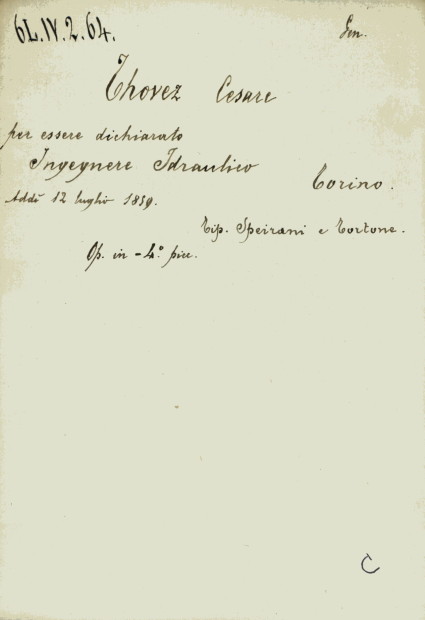 6L.IV.2.64.
Thovez Cesare
per essere dichiarato
Ingegnere Idraulico
Torino.
Addì 12 luglio 1859.
Tip. Speirani e Tortone.
Op. in - 4.° picc.
C